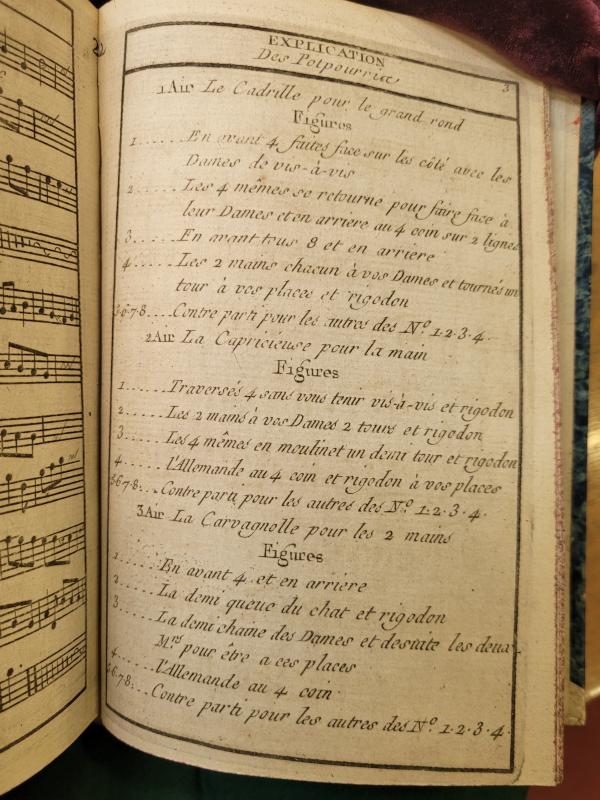 EXPLICATION
Des Potpourrix
3
1 Air Le Cadrille pour le grand rond
Figures
1...... En avant 4 faites face sur les côté avec les
Dames de vis-à-vis
2...... Les 4 mêmes se retourne pour faire face à
leur Dames et en arriere au 4 coin sur 2 lignes
3..... En avant tous 8 et en arriere
4..... Les 2 mains chacun à vos Dames et tournés un
tour à vos places et rigodon
5·6·7·8... Contre parti pour les autres des N.º 1·2·3·4·
2 Air La Capricieuse pour la main
Figures
1...... Traversés 4 sans vous tenir vis-à-vis et rigodon
2...... Les 2 mains à vos Dames 2 tours et rigodon
3...... Les 4 mêmes en moulinet un demi tour et rigodon
4...... l'Allemande au 4 coin et rigodon à vos places
5·6·7·8... Contre parti pour les autres des N.º 1·2·3·4·
3 Air La Carvagnolle pour les 2 mains
Figures
1...... En avant 4 et en arriere
2...... La demi queue du chat et rigodon
3...... La demi chaine des Dames et desuite les deux
M.rs pour être a ces places
4...... l'Allemande au 4 coin·
5·6·7·8... Contre parti pour les autres des N.º 1·2·3·4·